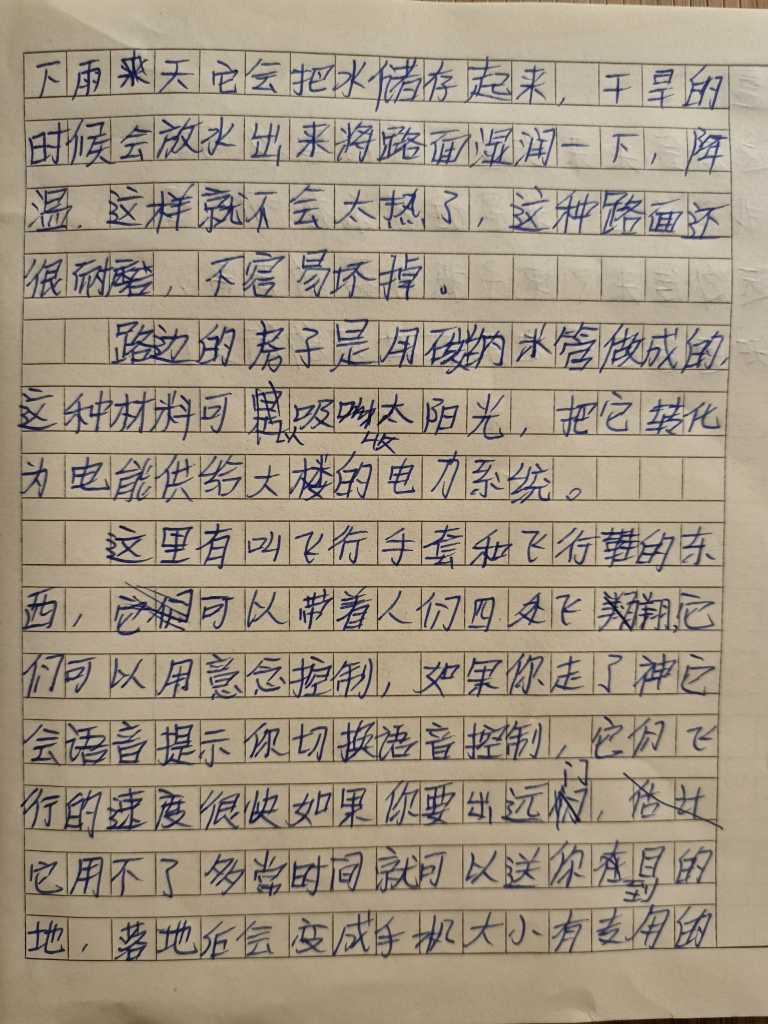 下雨来天它会把水储存起来，干旱的
时候会放水出来将路面湿润一下，降
温，这样就不会太热了，这种路面还
很耐磨，不容易坏掉。
路边的房子是用碳纳米管做成的，
这种材料可以吸收太阳光，把它转化
为电能供给大楼的电力系统。
这里有叫飞行手套和飞行鞋的东
西，可以带着人们四处飞翔，它
们可以用意念控制，如果你走了神它
会语音提示你切换语音控制，它们飞
行的速度很快如果你要出远门，
它用不了多常时间就可以送你到目的
地，落地后会变成手机大小有专用的